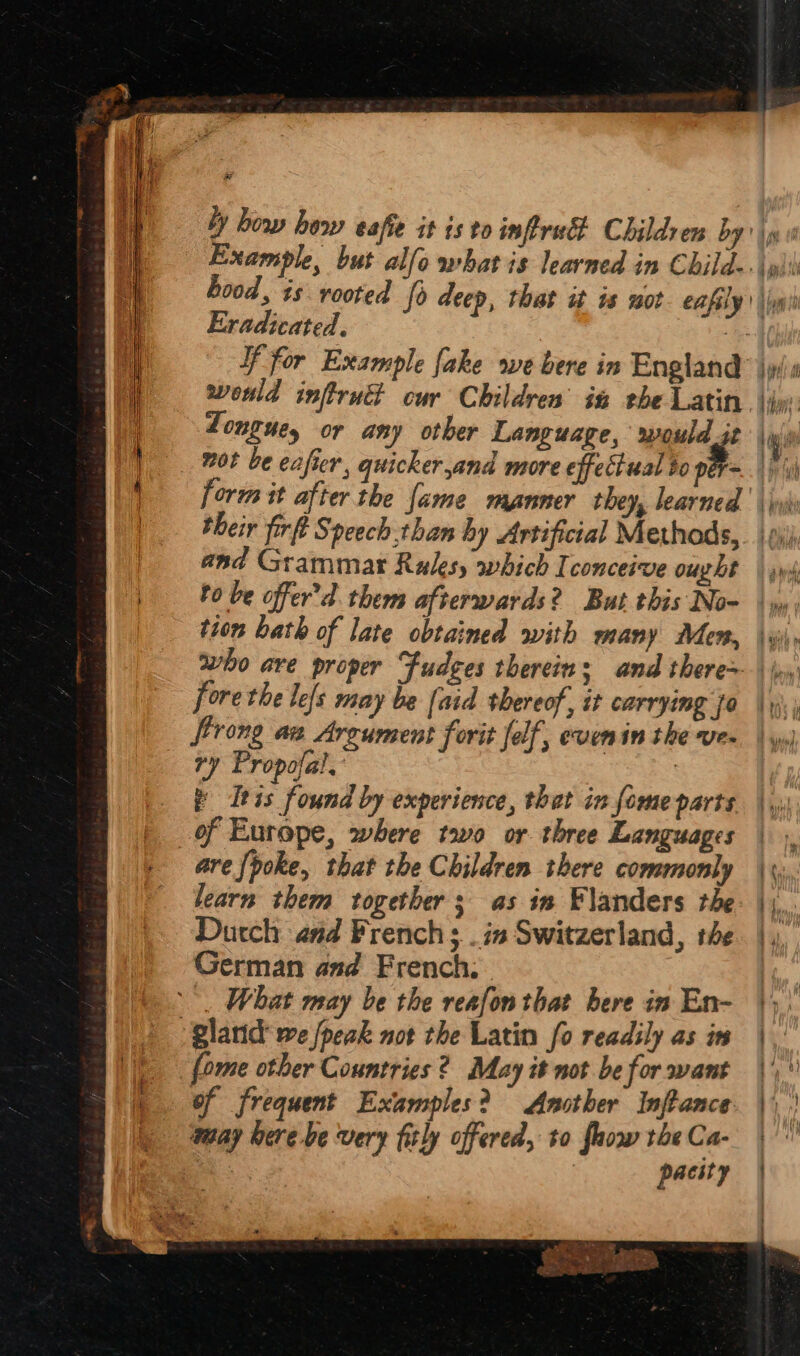 ly how how eaſie it is to inſtruct Children by
Example, but alſo what is learned in Child-
hood, is rooted ſo deep, that it is not eaſily
Eradicated.
If for Example ſake we here in England
would inſtruct our Children in the Latin
Tongue, or any other Language, would it
not be eaſier, quicker, and more effectual to per-
form it after the ſame manner they learned
their firſt Speech than by Artificial Methods,
and Grammar Rules, which I conceive ought
to be offer'd them afterwards? But this No-
tion hath of late obtained with many Men,
who are proper Judges therein; and there-
fore the leſs may be ſaid thereof, it carrying ſo
ſtrong an Argument for it ſelf, even in the ve-
ry Propoſal.
It is found by experience, that in ſome parts
of Europe, where two or three Languages
are ſpoke, that the Children there commonly
learn them together; as in Flanders the
Dutch and French; in Switzerland, the
German and French.
What may be the reaſon that here in En-
gland we ſpeak not the Latin ſo readily as in
ſome other Countries? May it not be for want
of frequent Examples? Another Inſtance
may here be very fitly offered, to ſhow the Ca-
pacity